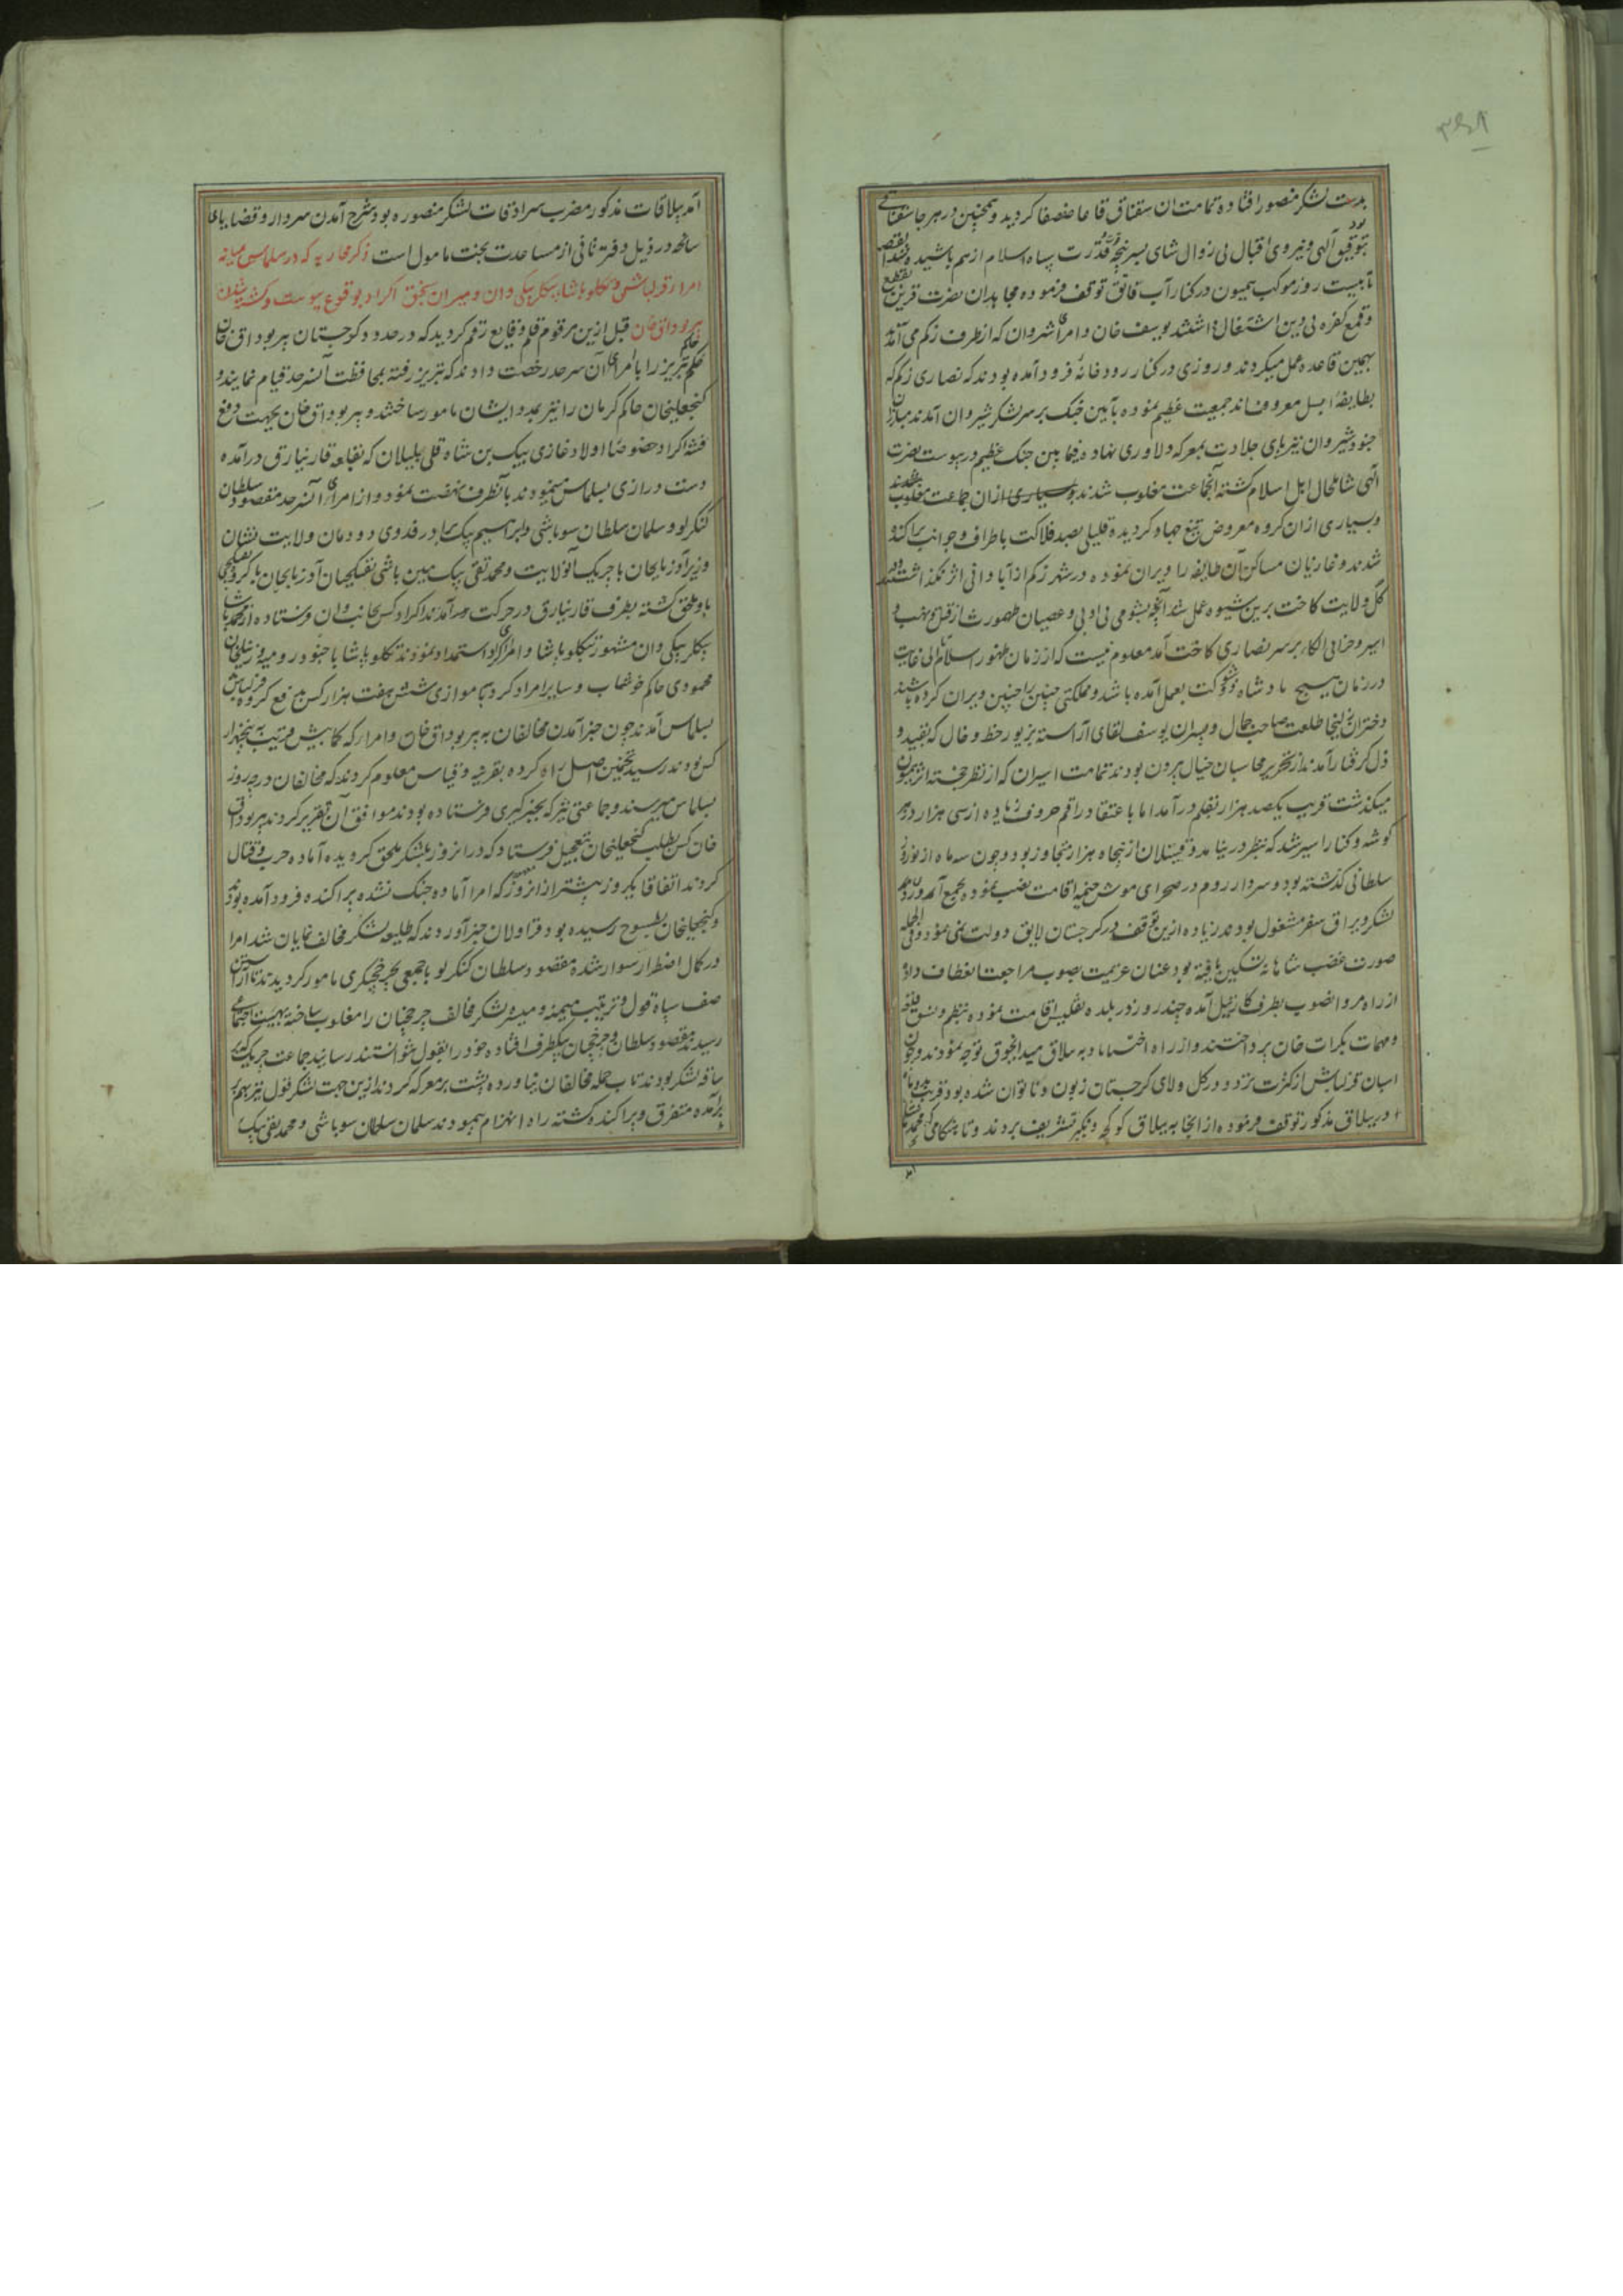 بدست لشکر منصور افتاده تمامت ان سقناق قاعا صفصفا کردید و همچنین در هر جا سقناقی
بود
بتوفیق آلهی و نیروی اقبال بی زوال شاهی بسر پنجه قدرت سپاه اسلام از هم پاشیده شد القصه
تا بیست روز موکب همیون در کنار آب قانق توقف فرموده مجاهدان نصرت قرین بقطع
و قمع کفره بی دین اشتغال داشتند یوسف خان و امرای شروان که از طرف زکم می آمدند
بهمین قاعده عمل میکردند و روزی در کنار رودخانه فرود آمده بودند که نصاری زکم که
بطایفه معروف اند جمعیت عظیم نموده بآیین جنک بر سر لشکر شیروان آمدند مبارزان
جنود شیروان نیز پای جلادت بمعرکه دلاوری نهاده فیما بین جنک عظیم در پیوست نصرت
آلهی شامل حال اهل اسلام کشته آنجماعت مغلوب شدند و بسیاری از ان جماعت مغلوب شدند
و بسیاری از ان کروه معروض تیغ جهاد کردیده قلیلی بصد فلاکت باطراف و جوانب پراکنده
شدند و غازیان مساکن آن طایفه را ویران نموده در شهر زکم از آبادانی اثر نکذاشتند و در
کل ولایت کاخت برین شیوه عمل شد آنچه بشومی بی ادبی و عصیان طهمورث از قتل و نهب و
اسیر و خرابی الکاء بر سر نصاری کاخت آمد معلوم نیست که از زمان ظهور اسلام الی غایت
در زمان هیچ پادشاه ذی شوکت بعمل آمده باشد و مملکتی چنین را چنین ویران کرده باشند
دختران زلیخا طلعت صاحب جمال و پسران یوسف لقای آراسته بزیور خط و خال که بقید و
ذل کرفتار آمدند از تحریر محاسبان خیال بیرون بودند تمامت اسیران که از نظر خجسته اثر همیون
میکذشت قریب یکصد هزار بقلم درآمد اما باعتقاد راقم حروف زیاده از سی هزار در هر
کوشه و کنار اسیر شد که بنظر در نیامد و قتیلان از پنجاه هزار متجاوز بود و چون سه ماه از نوروز
سلطانی کذشته بود و سردار روم در صحرای موش خیمه اقامت نصب نموده بجمع آوردن
لشکر و یراق سفر مشغول بودند زیاده ازین توقف در کرجستان لایق دولت نمی نمود و فی الجمله
صورت غضب شاهانه تسکین یافته بود عنان عزیمت بصوب مراجعت انعطاف داده
از راه مروا نضوب بطرف کارتیل آمده چند روز در بلده تفلیس اقامت نموده بنظم و نسق قلعه
و مهمات بکرات خان پرداختند و از راه اختماباد به ییلاق میدانجوق توجه نمودند و چون
اسبان قزلباش از کثرت تردد در کل ولای کرجستان زبون و ناتوان شده بود قریب بدو ماه
در ییلاق مذکور توقف فرموده از انجا به ییلاق کوکچه دنکیز تشریف بردند و تا هنکامی که محمد پاشا
آمد ییلاقات مذکور مضرب سرادقات لشکر منصوره بود شرح آمدن سردار و قضایای
سانحه در ذیل دفتر ثانی از مساعدت بخت مامول است ذکر محاربه که در سلماس میانه
امراء قزلباش و تکلو پاشا بیکلربیکی وان و میران سنجق اکراد بوقوع پیوست و کشته شدن
پیر بوداق خان قبل ازین مرقوم قلم وقایع رقم کردید که در حدود کرجستان پیر بوداق خان
حاکم تبریز را با امرای آن سرحد رخصت دادند که بتبریز رفته بمحافظت آن سرحد قیام نمایند و
کنجعلیخان حاکم کرمان را نیز بمدد ایشان مامور ساختند و پیر بوداق خان بجهت دفع
فتنه اکراد خصوصا اولاد غازی بیک بن شاه قلی بلیلان که بقلعه قارنیارق درآمده
دست درازی بسلماس مینمودند بآنطرف نهضت نمود و از امرای آن سرحد مقصود سلطان
کنکرلو و سلمان سلطان سوباشی و ابراهیم بیک برادر فدوی دودمان ولایت نشان
وزیر آذربایجان با چریک آنولایت و محمد تقی بیک مین باشی تفنکچیان آذربایجان با کروه تفنکچی
باو ملحق کشته بطرف قارنیارق در حرکت درآمدند اکراد کس بجانب وان فرستاده از محمد پاشا
بیکلربیکی وان مشهور بتکلو پاشا و امرای اکراد استمداد نمودند تکلو پاشا با جنود رومیه و زینلخان
محمودی حاکم خوشاب و سایر امراء کرد با موازی شش هفت هزار کس بدفع کروه قزلباش
بسلماس آمدند چون خبر آمدن مخالفان به پیر بوداق خان و امراء که کمابیش قریب به پنجهزار
کس بودند رسید تخمین اصل راه کرده بقرینه و قیاس معلوم کردند که مخالفان در چه روز
بسلماس میرسند و جماعتی نیز که بخبر کیری فرستاده بودند موافق آن تقریر کردند پیر بوداق
خان کس بطلب کنجعلیخان بتعجیل فرستاد که در انروز بلشکر ملحق کردیده آماده حرب و قتال
کردند اتفاقا یکروز پیشتر از ان روز که امرا آماده جنک نشده پراکنده فرود آمده بودند
و کنجعلیخان بطسوج رسیده بود قراولان خبر آوردند که طلیعه لشکر مخالف نمایان شد امرا
در کمال اضطرار سوار شده مقصود سلطان کنکرلو با جمعی بچرخچیکری مامور کردیدند تا آراستن
صف سپاه قول و ترتیب میمنه و میسره لشکر مخالف چرخچیان را مغلوب ساخته بهیئت اجتماعی
رسیدند مقصود سلطان و چرخچیان بیکطرف افتاده خود را بقول نتوانستند رسانید جماعت چریک که در
ساقه لشکر بودند تاب حمله مخالفان نیاورده پشت بر معرکه کردند ازین جهت لشکر قول نیز بهم
برآمده متفرق و پراکنده کشته راه انهزام پیمودند سلمان سلطان سوباشی و محمد تقی بیک